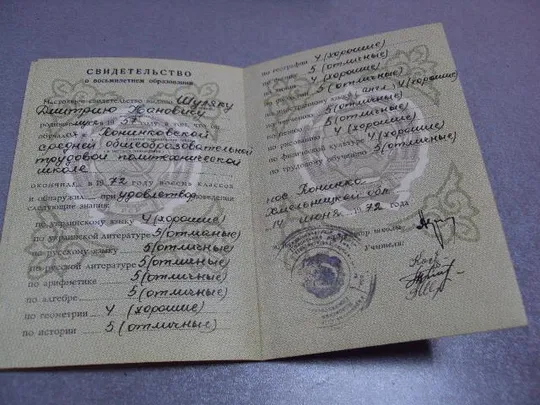 СВИДЕТЕЛЬСТВО
о восьмилетнем образовании
Настоящее свидетельство выдано Шуляку
Дмитрию Ивановичу
в том, что он
Понинковской
средней общеобразовательной
трудовой политехнической
школе
окончил в 1972 году восемь классов
и обнаружил при удовлетвор поведении
следующие знания:
по украинскому языку 4 (хорошие)
по украинской литературе 5 (отличные)
по русскому языку 5 (отличные)
по русской литературе 5 (отличные)
по арифметике 5 (отличные)
по алгебре 5 (отличные)
по геометрии 4 (хорошие)
по истории 5 (отличные)
по географии 4 (хорошие)
5 (отличные)
по физике 4 (хорошие)
5 (отличные)
англ. 4 (хорошие)
5 (отличные)
по рисованию 5 (отличные)
4 (хорошие)
по физической культуре 4 (хорошие)
по трудовому обучению 5 (отличные)
пос. Понинка
Хмельницкой обл.
14 июня 1972 года
школы
Учителя: